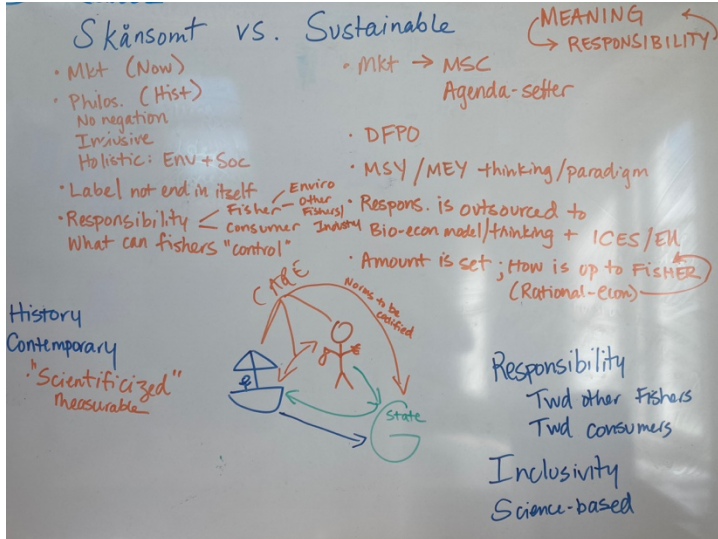 Skånsomt vs. Sustainable
MEANING
→ RESPONSIBILITY
• Mkt (Now)
• Philos. (Hist)
No negation
Inclusive
Holistic: Env + Soc
• Label not end in itself
• Responsibility < Fisher - Enviro
Other Fishers/
Industry
Consumer
What can fishers "control"
• Mkt → MSC
Agenda-setter
• DFPO
• MSY/MEY thinking/paradigm
• Respons. is outsourced to
Bio-econ model/thinking + ICES/EU
• Amount is set; How is up to FISHER
(Rational-econ)
CARE
Norms to be
codified
State
History
Contemporary
"Scientificized"
measurable
Responsibility
Twd other Fishers
Twd consumers
Inclusivity
Science-based